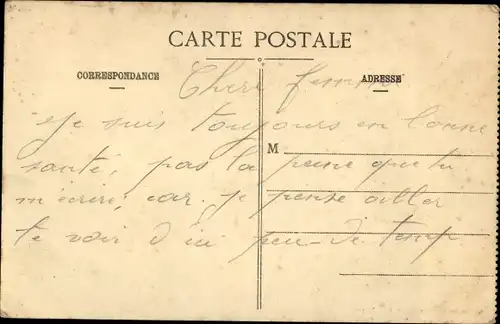 CARTE POSTALE
CORRESPONDANCE
ADRESSE
Chere femme
Je suis toujours en bonne
M
santé, pas la peine que tu
m'écrire, car je pense aller
te voir d'ici peu-de temp